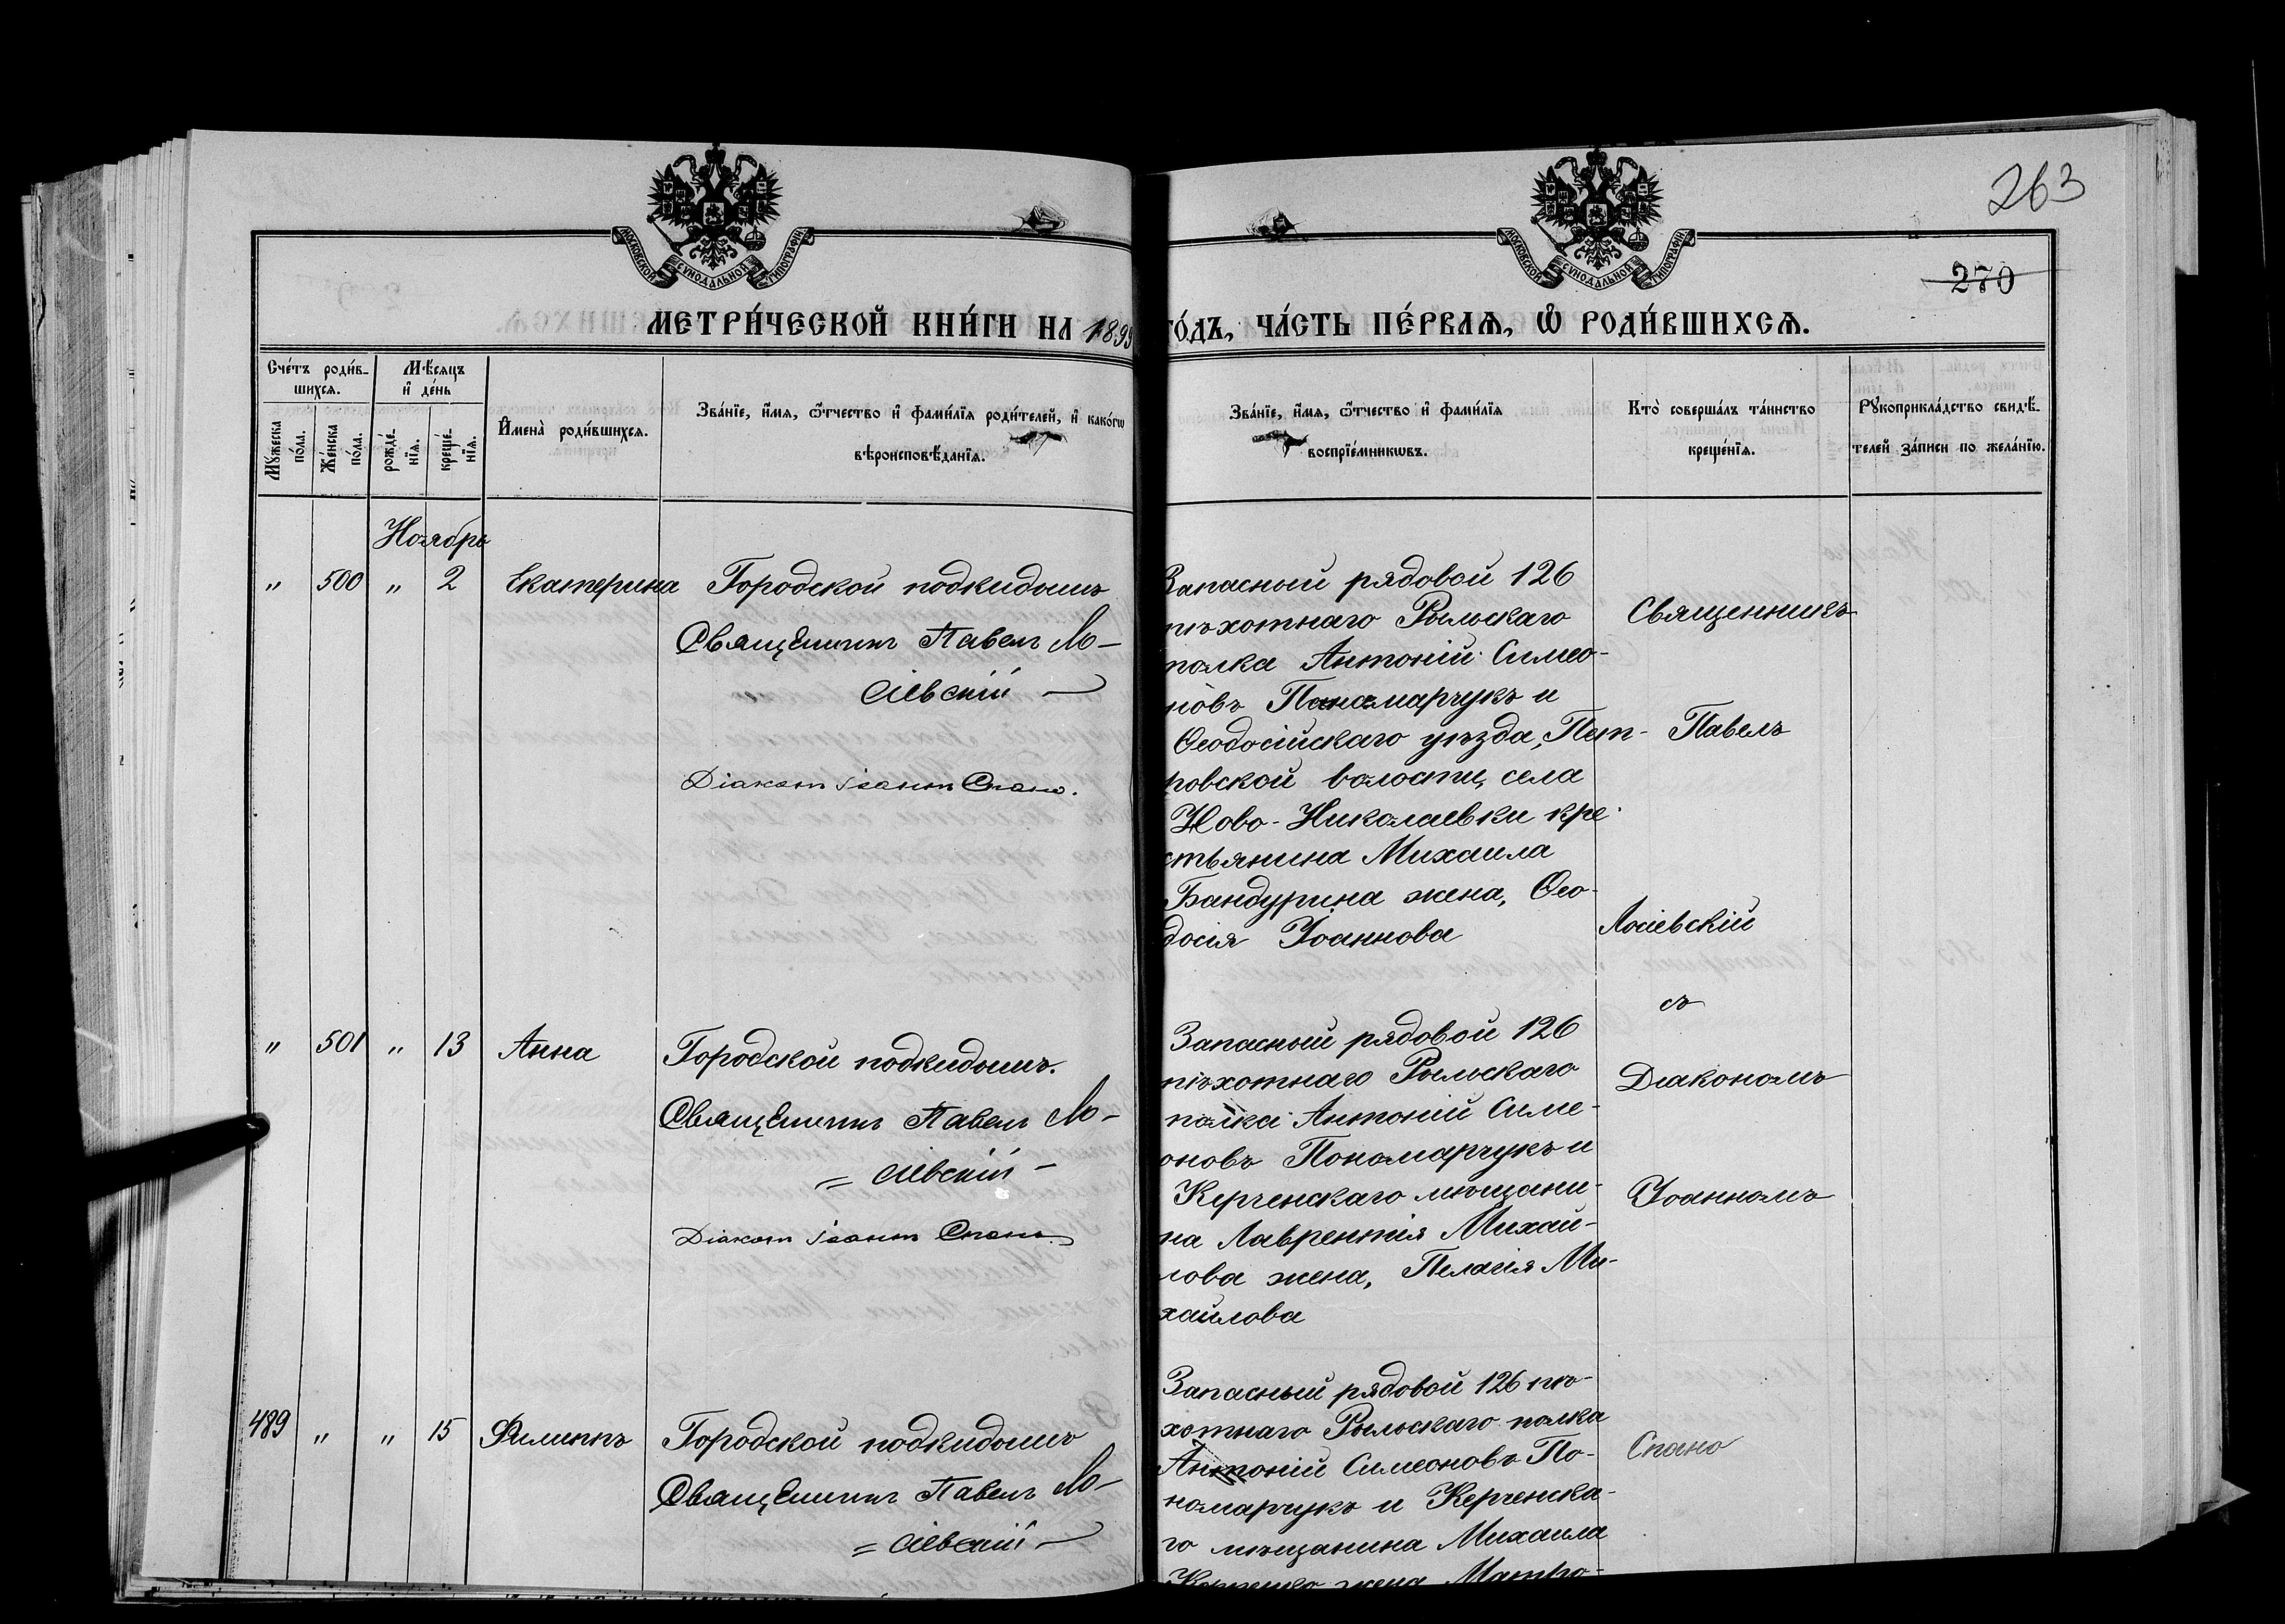 МОСКОВСКОЙ СУНОДАЛЬНОЙ ТИПОГРАФІИ
МОСКОВСКОЙ СУНОДАЛЬНОЙ ТИПОГРАФІИ
263
270
МЕТРИ́ЧЕСКОЙ КНИ́ГИ НА 1899
ГО́ДЪ, ЧА́СТЬ ПЕ́РВАѦ, Ѡ҆ РОДИ́ВШИХСѦ.
Сче́тъ роди́в-
шихсѧ.
Мѣ́сѧцъ
и҆ де́нь
Мꙋ́жеска
по́ла.
Же́нска
по́ла.
рожде́-
нїѧ.
креще́-
нїѧ.
И҆мена̀ роди́вшихсѧ.
Зва́нїе, и҆́мѧ, ѻ҆́тчество и҆ фами́лїѧ роди́телей, и҆ како́гѡ
вѣроисповѣ́данїѧ.
Зва́нїе, и҆́мѧ, ѻ҆́тчество и҆ фами́лїѧ
воспрїе́мникѡвъ.
Кто̀ соверша́лъ та́инство
креще́нїѧ.
Рꙋкоприкла́дство свидѣ́-
телей за́писи по жела́нїю.
Ноябрь
„ 500 „ 2 Екатерина
Городской подкидышъ
Священникъ Павелъ Ло-
сіевскій
Діаконъ Іоаннъ Спано.
Запасный рядовой 126
пѣхотнаго Рыльскаго
полка Антоній Симео-
новъ Панамарчукъ и
Ѳеодосійскаго уѣзда, Пет-
ровской волости, села
Ново-Николаевки кре-
стьянина Михаила
Бандурина жена, Ѳео-
досія Іоаннова
Священникъ
Павелъ
Лосіевскій
съ
Діакономъ
Іоанномъ
Спано
„ 501 „ 13 Анна
Городской подкидышъ.
Священникъ Павелъ Ло-
= сіевскій -
Діаконъ Іоаннъ Спано.
Запасный рядовой 126
пѣхотнаго Рыльскаго
полка Антоній Симе-
оновъ Пономарчукъ и
Керченскаго мѣщани-
на Лаврентія Михай-
лова жена, Пелагія Ми-
хайлова
489 „ „ 15 Филиппъ
Городской подкидышъ
Священникъ Павелъ Ло-
= сіевскій
Запасный рядовой 126 пѣ-
хотнаго Рыльскаго полка
Антоній Симеоновъ По-
номарчукъ и Керченска-
го мѣщанина Михаила
жена Матро-